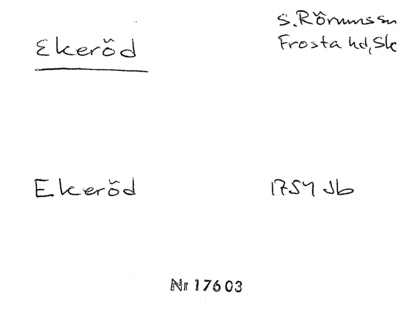 Ekeröd
S. Rörums sn
Frosta hd, Sk
Ekeröd
1754 Jb
Nr 17603